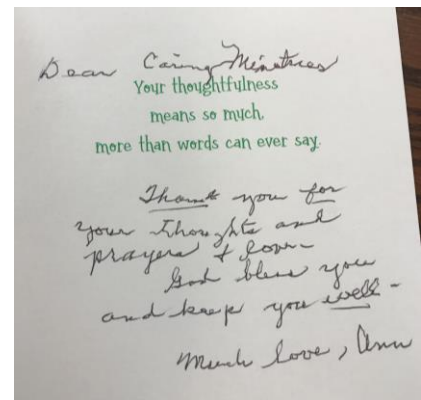 Dear Caring Ministries
Your thoughtfulness
means so much,
more than words can ever say.
Thank you for
your thoughts and
prayers & love-
God bless you
and keep you well -
Much love, Ann